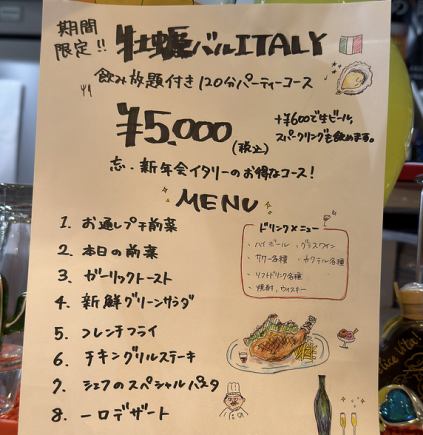 期間
限定!!
牡蠣バルITALY
飲み放題付き120分パーティーコース
¥5,000(税込)
+¥600で生ビール、
スパークリングも飲めます。
忘・新年会イタリーのお得なコース!
MENU
1. お通しプチ前菜
2. 本日の前菜
3. ガーリックトースト
4. 新鮮グリーンサラダ
5. フレンチフライ
6. チキングリルステーキ
7. シェフのスペシャルパスタ
8. 一口デザート
ドリンクメニュー
・ハイボール ・グラスワイン
・サワー各種 ・カクテル各種
・ソフトドリンク各種
・焼酎、ウィスキー